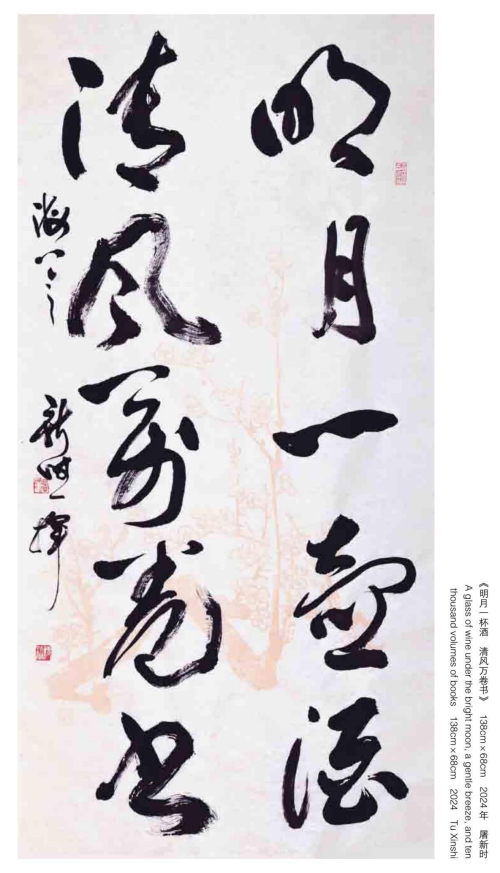 明月一壺酒
清风萬卷书
《明月一杯酒 清风万卷书》 138cm×68cm 2024年 屠新时
A glass of wine under the bright moon, a gentle breeze, and ten
thousand volumes of books 138cm×68cm 2024 Tu Xinshi